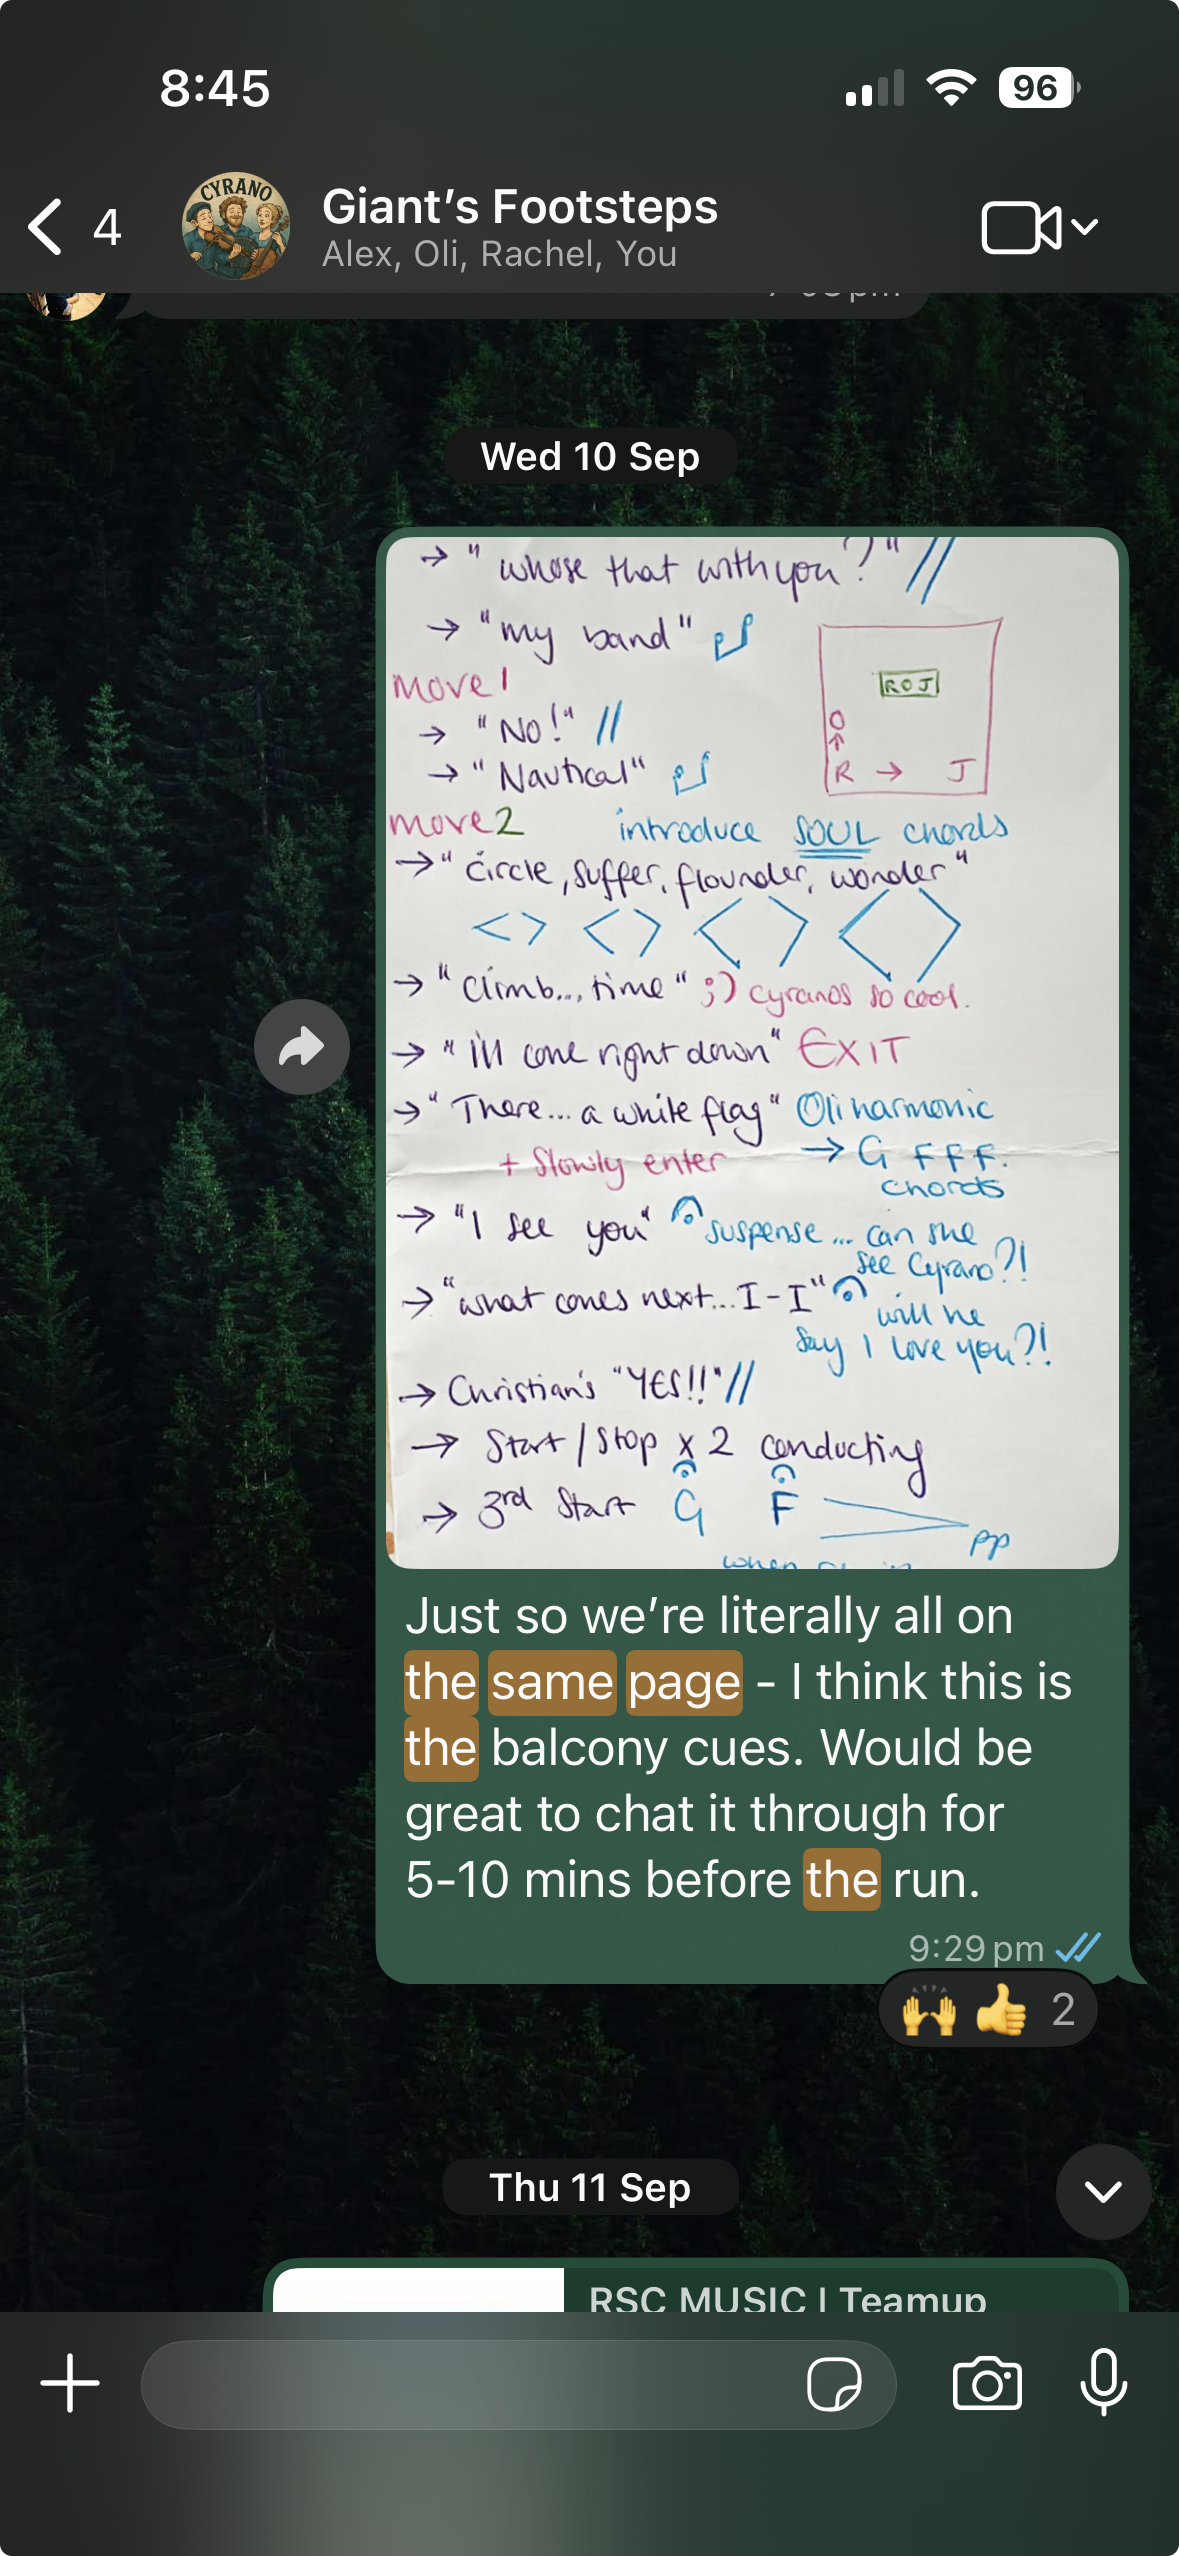 8:45
96
4
CYRANO
Giant's Footsteps
Alex, Oli, Rachel, You
Wed 10 Sep
→ " whose that with you?" //
→ "my band"
move 1
ROJ
→ "No!" //
O
↑
→ "Nautical"
R → J
move 2 introduce SOUL chords
→ "circle, suffer, flounder, wonder"
< > < > < > < >
→ "climb... time" ;) cyranos so cool.
→ "I'll come right down" EXIT
→ "There... a white flag" Oli harmonic
+ Slowly enter → G FFF.
chords
→ "I see you" suspense... can she
see Cyrano?!
→ "what comes next... I-I" will he
say I love you?!
→ Christian's "YES!!" //
→ Start / Stop x 2 conducting
→ 3rd Start G F > pp
when
Just so we're literally all on
the same page - I think this is
the balcony cues. Would be
great to chat it through for
5-10 mins before the run.
9:29 pm
🙌 👍 2
Thu 11 Sep
RSC MUSIC | Teamup